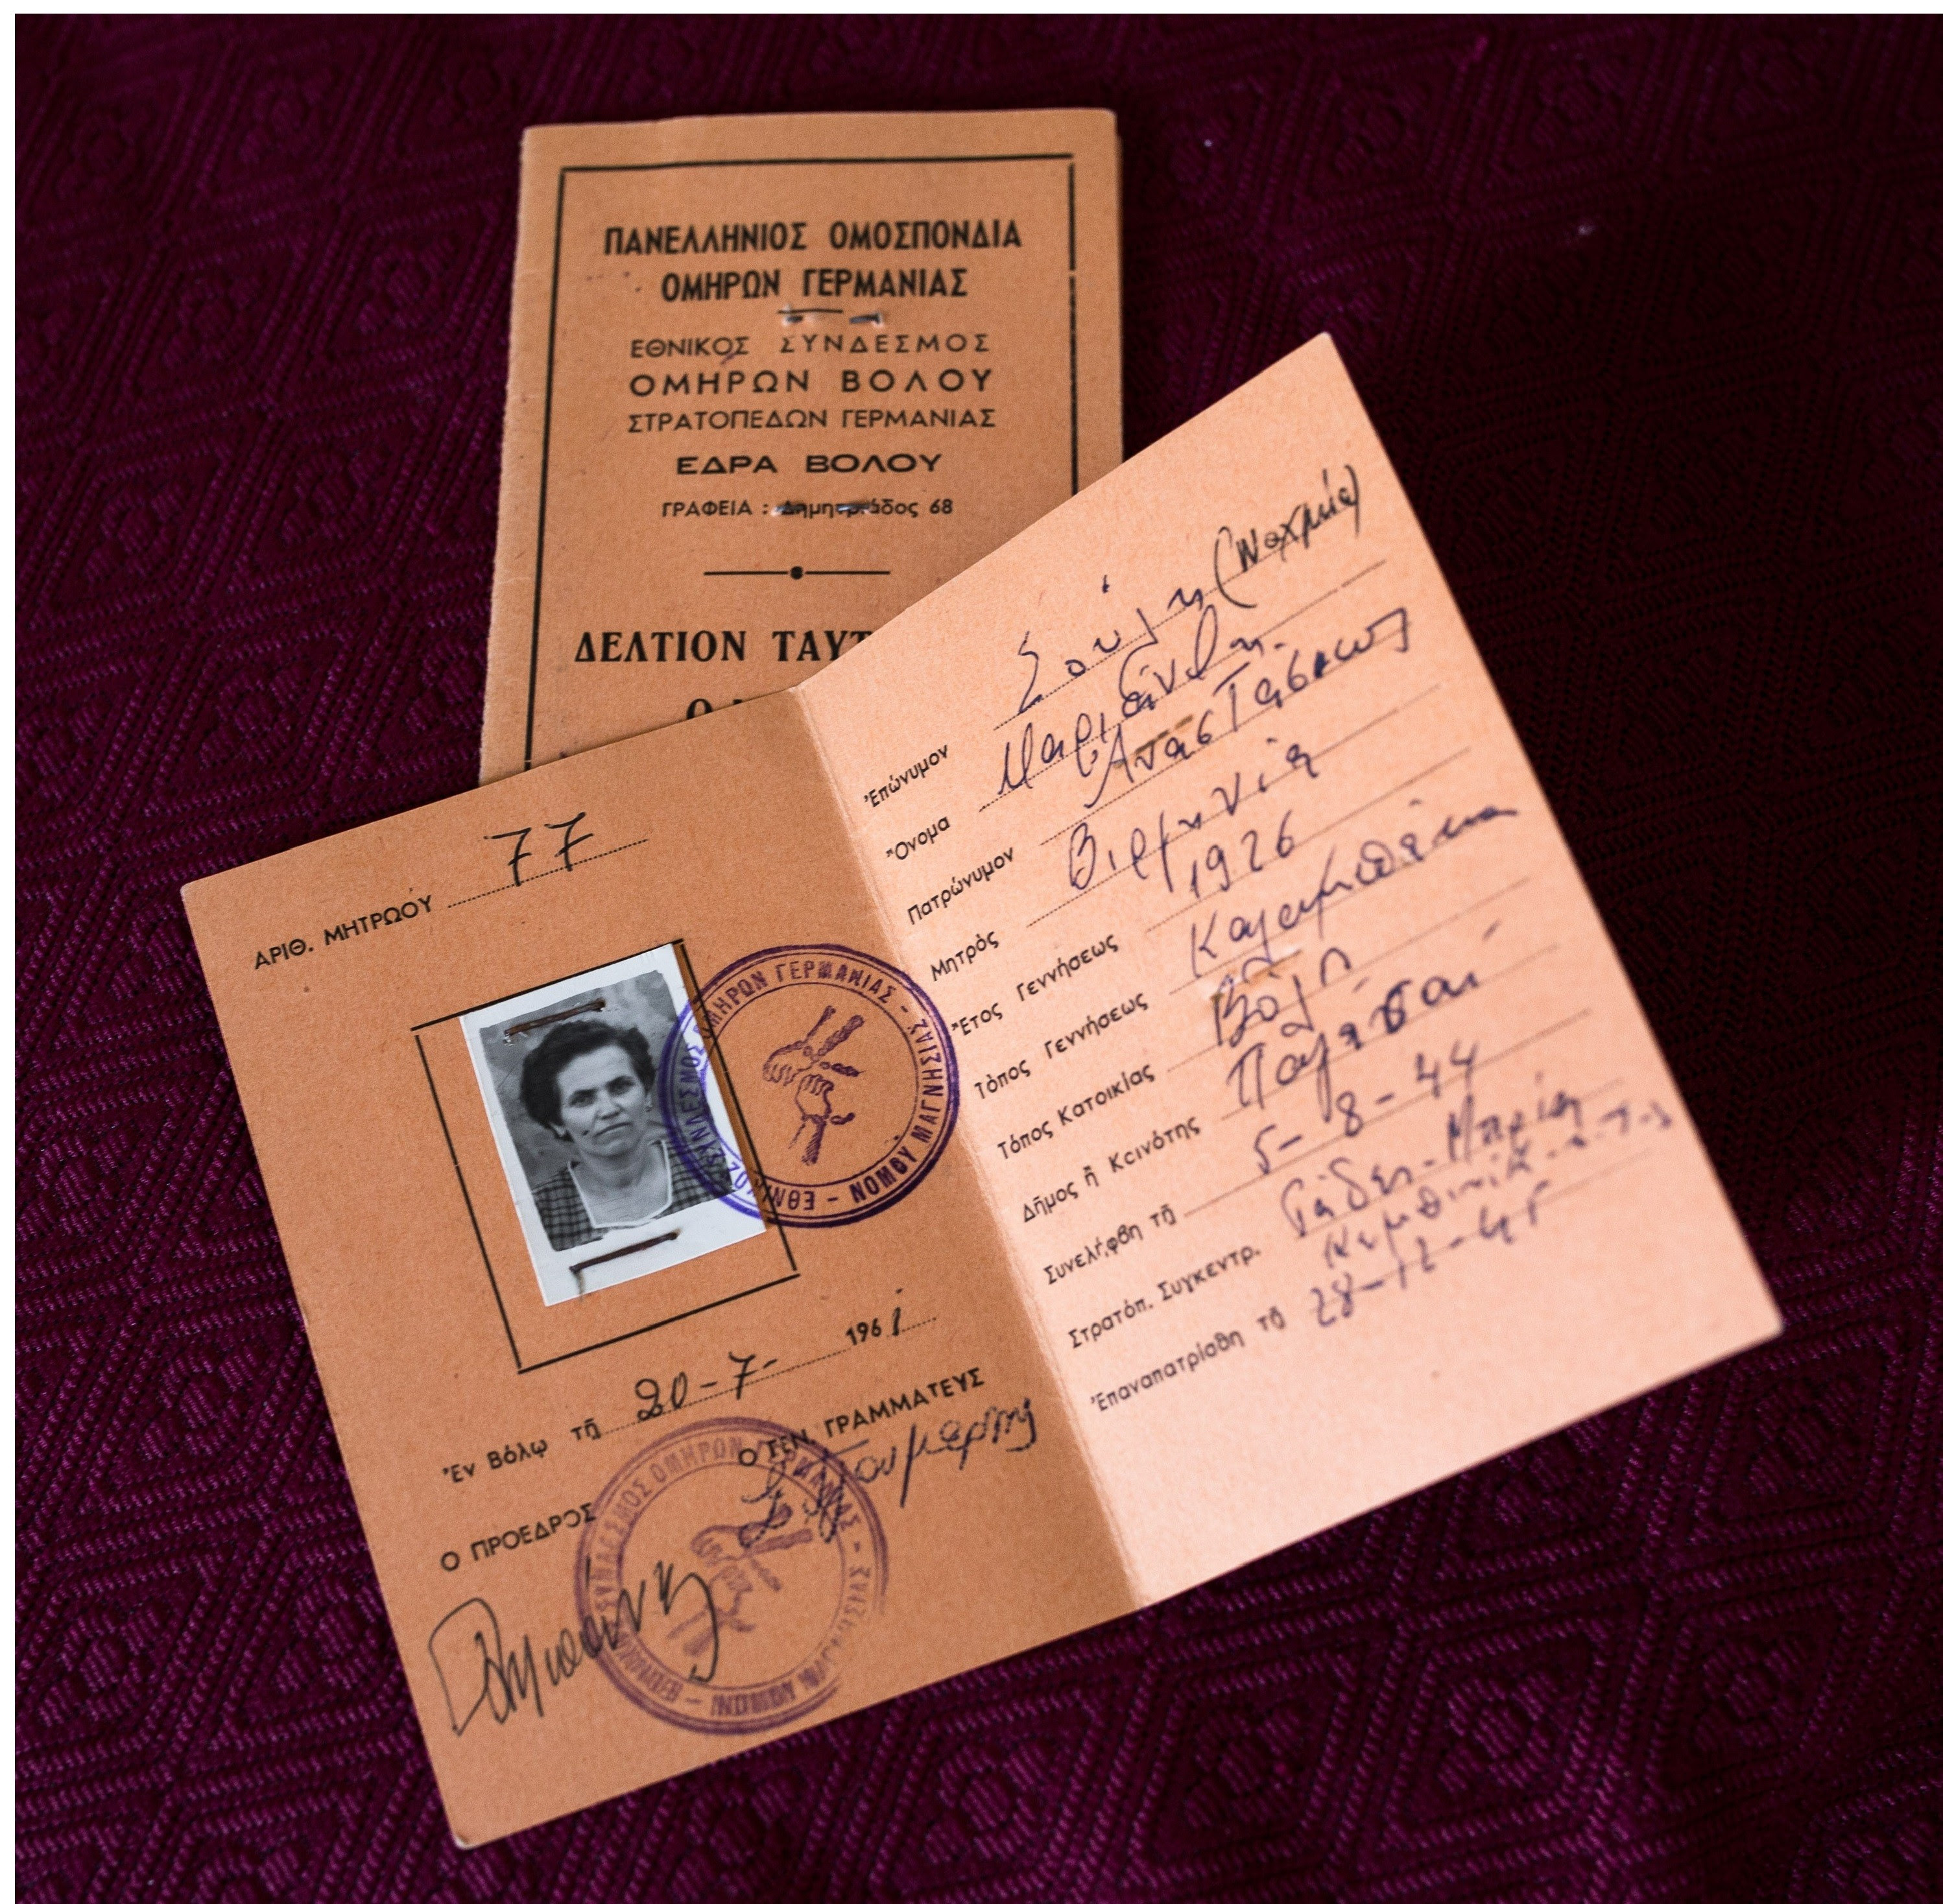 ΠΑΝΕΛΛΗΝΙΟΣ ΟΜΟΣΠΟΝΔΙΑ
ΟΜΗΡΩΝ ΓΕΡΜΑΝΙΑΣ
ΕΘΝΙΚΟΣ ΣΥΝΔΕΣΜΟΣ
ΟΜΗΡΩΝ ΒΟΛΟΥ
ΣΤΡΑΤΟΠΕΔΩΝ ΓΕΡΜΑΝΙΑΣ
ΕΔΡΑ ΒΟΛΟΥ
ΓΡΑΦΕΙΑ : Δημητριάδος 68
ΔΕΛΤΙΟΝ ΤΑΥΤ
ΑΡΙΘ. ΜΗΤΡΩΟΥ 77
ΕΘΝΙΚΟΣ ΣΥΝΔΕΣΜΟΣ ΟΜΗΡΩΝ ΓΕΡΜΑΝΙΑΣ - ΝΟΜΟΥ ΜΑΓΝΗΣΙΑΣ -
Ἐν Βόλῳ τῇ 20-7- 1961
Ο ΠΡΟΕΔΡΟΣ Ο ΓΕΝ. ΓΡΑΜΜΑΤΕΥΣ
ΕΘΝΙΚΟΣ ΣΥΝΔΕΣΜΟΣ ΟΜΗΡΩΝ ΓΕΡΜΑΝΙΑΣ - ΝΟΜΟΥ ΜΑΓΝΗΣΙΑΣ -
Ἐπώνυμον Σούλη
Ὄνομα Μαριάνθη
Πατρώνυμον Αναστάσιος
Μητρὸς
Ἔτος Γεννήσεως 1926
Τόπος Γεννήσεως Καλαμπάκα
Τόπος Κατοικίας Βόλος
Δῆμος ἢ Κοινότης
Συνελήφθη τῇ 5-8-44
Στρατόπ. Συγκεντρ.
Ἐπαναπατρίσθη τῇ 28-12-45